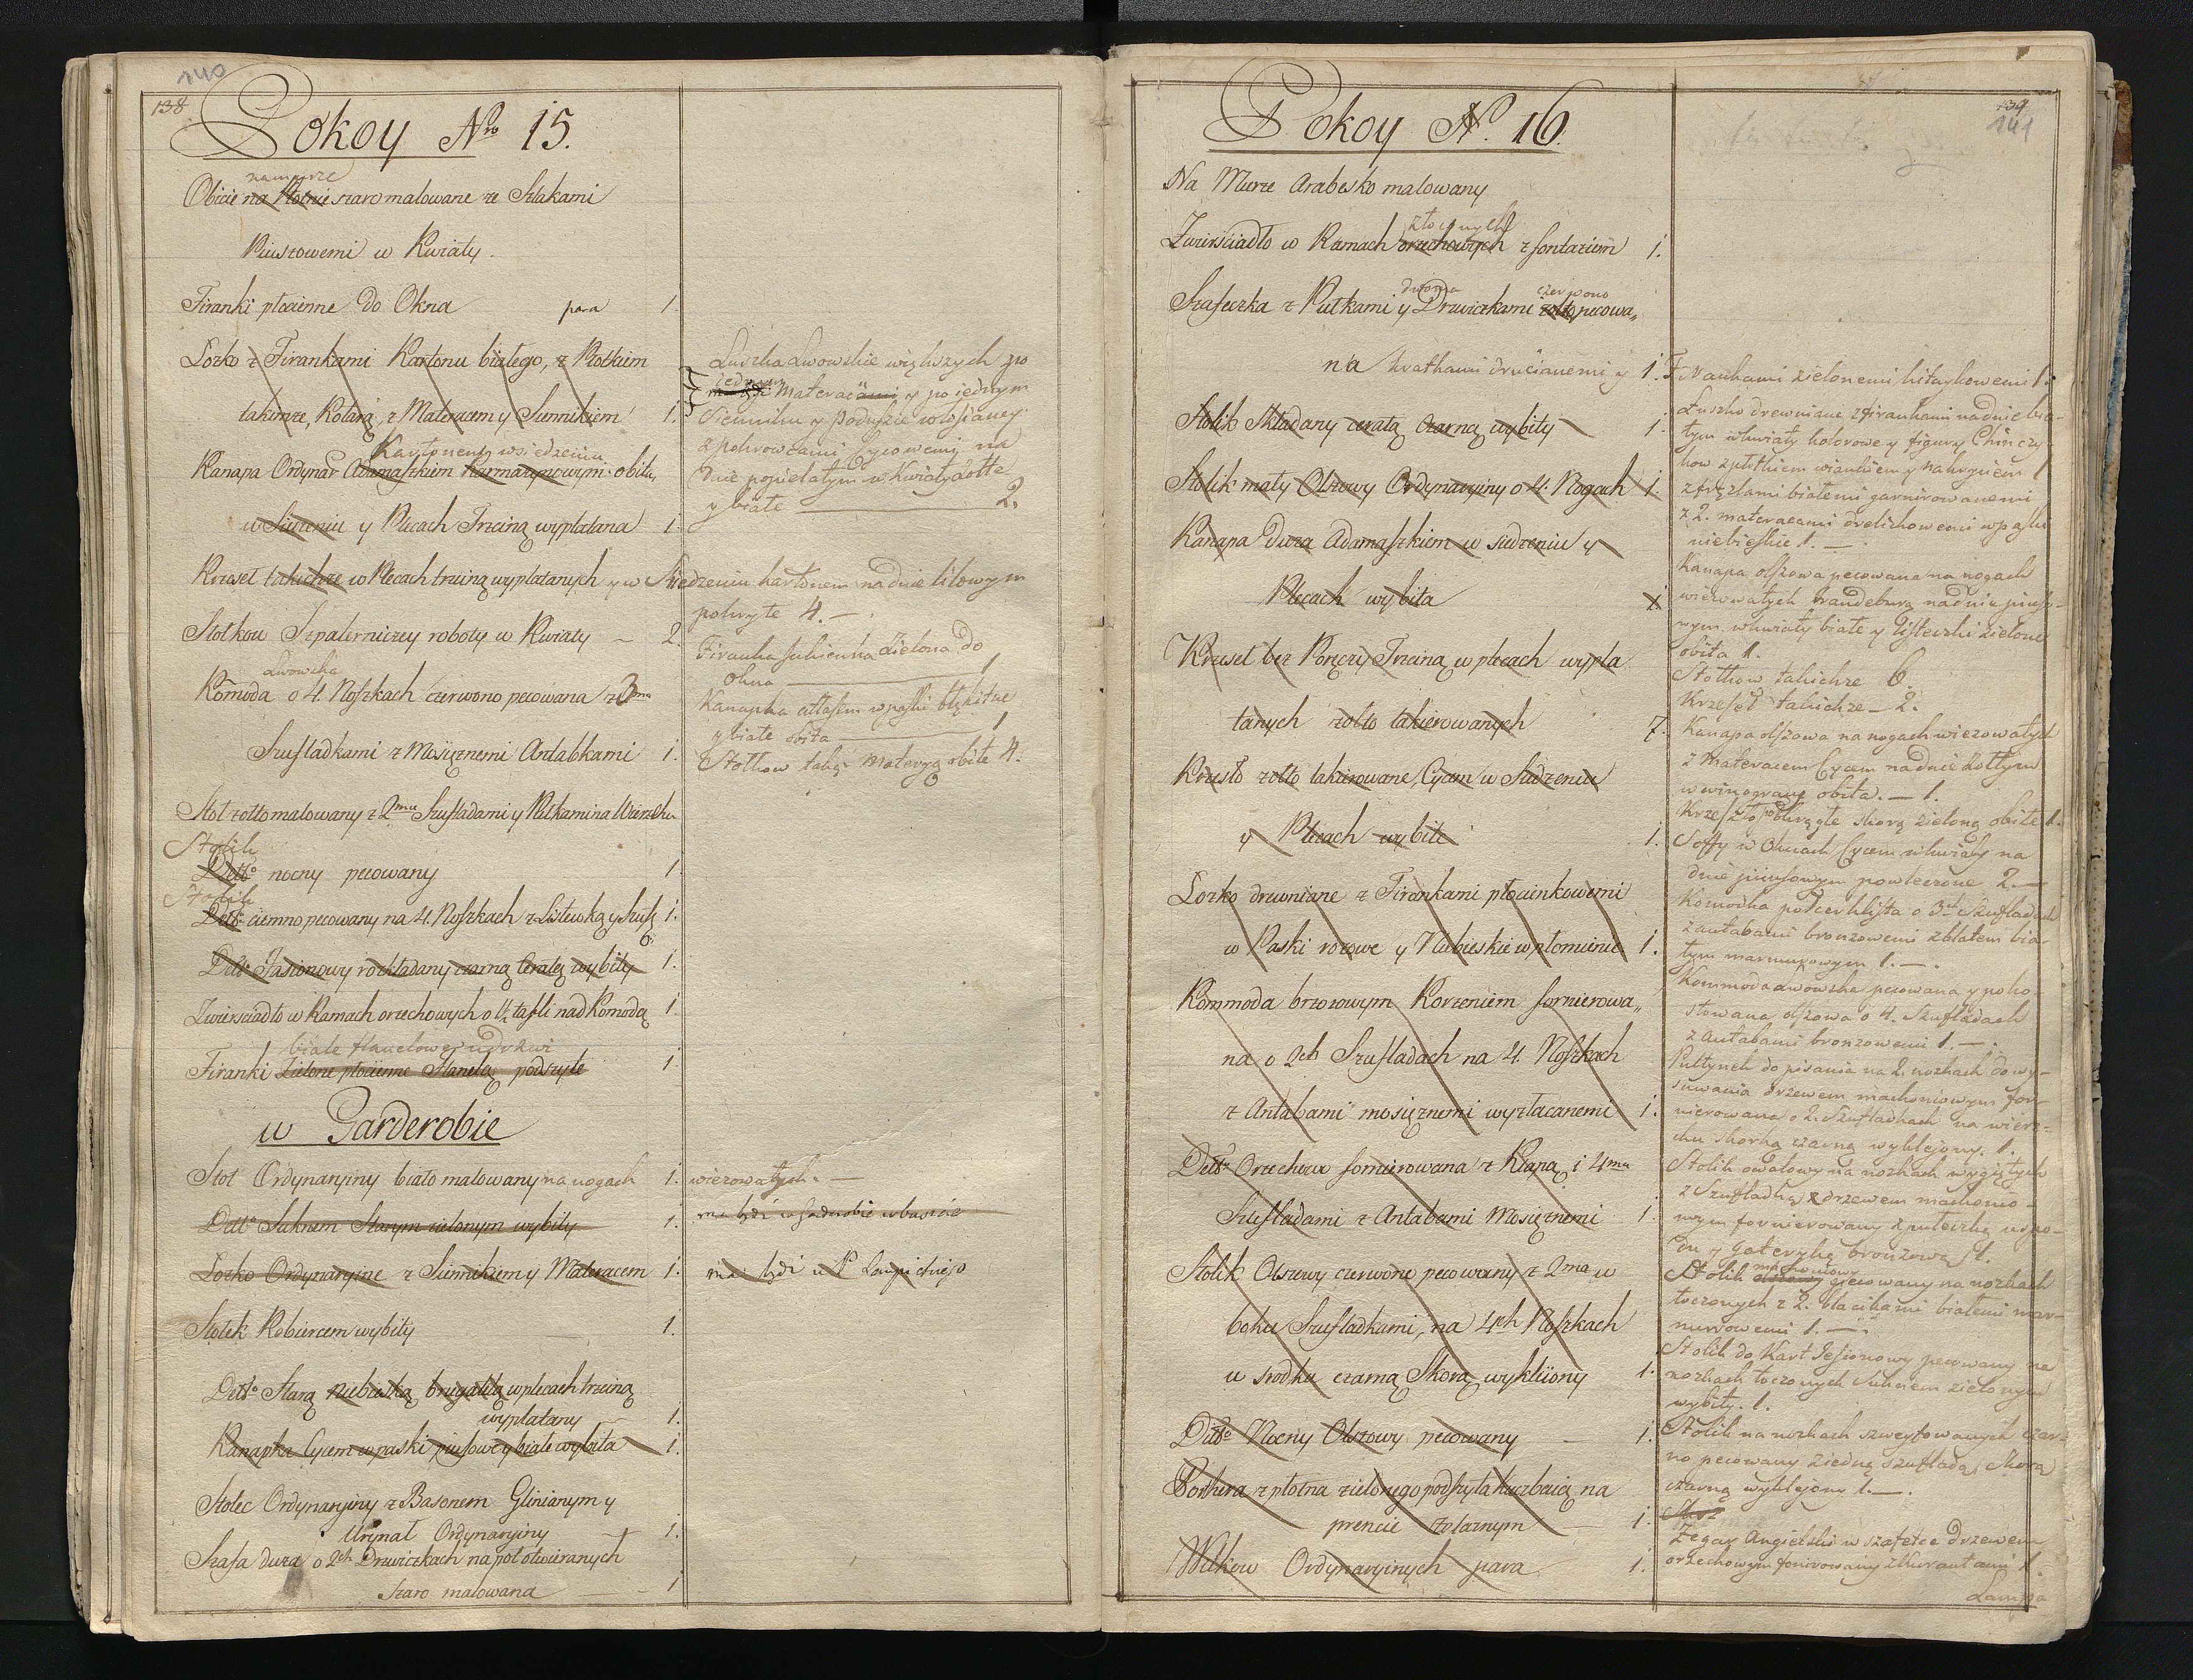 140
138
Pokoy Nro 15.
na murze
Obicie na Płotnie szaro malowane ze Szlakami
Piusowemi w Kwiaty.
Firanki płocienne do Okna para 1.
Lozko z Firankami Kartonu białego, z Kołkiem
takimże, Kołarą, z Materacem y Siennikiem 1.
Kartonem w siedzeniu
Kanapa Ordynar Adamaszkiem Karmazynowym obita,
w Siedzeniu y Plecach Trzciną wyplatana 1.
Krzeseł takichże w Plecach trzciną wyplatanych y w Siedzeniu kartonem na dnie lilowym
Stołkow Szpalerniczey roboty w Kwiaty – 2.
Lwowska
Komoda o 4. Noszkach czerwono pecowana z 3ma
Szufladkami z Mosiężnemi Antabkami 1.
Stoł zołto malowany z 2ma Szufladami y Pułkami na Wierzchu
Stolik
Detto nocny pecowany 1.
Stolik
Detto ciemno pecowany na 4. Noszkach z Listewką y Szufl 1.
Detto Jasionowy rozkładany czarną Ceratą wybity 1.
Zwierściadło w Ramach orzechowych o 1/2 tafli nad Komodą 1.
białe flanelowe u drzwi
Firanki Zielone płocienne Flanelą podszyte 1.
w Garderobie
Stoł Ordynaryiny biało malowany na nogach 1.
Detto Suknem Starym zielonym wybity 1.
Lozko Ordynaryine z Siennikiem y Materacem 1.
Stołek Kobiercem wybity 1.
Detto Starą Niebieską brygatelą w plecach trzciną
wyplatany 1.
Kanapka Cycem w paski piusowe y białe wybita 1.
Stolec Ordynaryiny z Basonem Glinianym y
Urynał Ordynaryiny 1.
Szafa duza o 2ch Drzwiczkach na poł otwieranych
szaro malowana 1
Luszka Lwowskie większych po
jednym
Materacami y po jednym
Sienniku y Poduszce włosianey
z pokrowcami Cycowemi na
dnie popielatym w Kwiaty zołte
y białe 2.
pokryte 4. –
Firanka sukienna zielona do
Okna 1
Kanapka atłasem w paski błękitne
y białe obita 1
Stołkow taką materyą obite 4.
wiezowatych. –
ma bydź w Garderobie
ma bydź u P.
139
141
Pokoy No. 16.
Na Murze Arabesko malowany
złoconych
Zwierściadło w Ramach orzechowych z fontaziem 1.
dwoma czerwono
Szafeczka z Pułkami y Drzwiczkami zołto pecowa„
na kratkami drucianemi y 1.
Stolik Składany ceratą czarną wybity 1.
Stolik mały Olszowy Ordynaryiny o 4. Nogach 1.
Kanapa Duza Adamaszkiem w siedzeniu y
Plecach wybita 1
Krzeseł bez Poręczy Trzciną w plecach wypla
tanych zołto lakierowanych 7.
Krzesło zołto lakierowane, Cycem w Siedzeniu
y Plecach wybite 1.
Lozko drewniane z Firankami płocinkowemi
w Paski rozowe y Niebieskie w płomienie 1.
Kommoda brzozowym Korzeniem fornierowa„
na o 2ch Szufladach na 4. Noszkach
z Antabami mosiężnemi wyzłacanemi 1.
Detto Orzechowa fornierowana z Klapą i 4ma
Szufladami z Antabami Mosiężnemi 1.
Stolik Olszowy czerwono pecowany z 2ma w
boku Szufladkami, na 4ch Noszkach
w srodku czarną Skorą wykliiony 1.
Detto Nocny Olszowy pecowany 1.
Portiera z płotna zielonego podszyta kuczbaią na
prencie żelaznym 1.
Wilkow Ordynaryinych para 1.
Firankami zielonemi kitaykowemi 1.
Łuszko drewniane z firankami na dnie bia-
łym w kwiaty kolorowe y figury Chinczy-
kow z płotkiem wiankiem y nakryciem 1
z fręzlami białemi garnirowanemi
z 2. materacami drelichowemi w paski
niebieskie 1. –
Kanapa olszowa pecowana na nogach
wiezowatych Brandeburą na dnie piuso-
wym w kwiaty białe y listeczki zielone
obita 1.
Stołkow takichze 6.
Krzeseł takichze – 2.
Kanapa olszowa na nogach wiezowatych
z Materacem Cycem na dnie zołtym
w winograny obita. – 1.
Krzesło okrągłe skorą zieloną obite 1.
Soffy w Oknach Cycem w kwiaty na
dnie piusowym powleczone 2. –
Komodka połcerklista o 3ch Szufladach
z antabami bronzowemi z blatem bia-
łym marmurowym 1. –
Kommoda Lwowska pecowana y poko-
stowana olszowa o 4. Szufladach
z Antabami bronzowemi 1. –
Pultynek do pisania na 2. nozkach do wy-
suwania drzewem machoniowym for-
nierowana o 2. Szufladkach na wierz-
chu skorką czarną wyklejony. 1.
Stolik owalowy na nozkach wygiętych
z Szufladką z drzewem machonio-
wym fornierowany z puleczką u spo-
du y galeryką bronzową 1.
machoniowy
Stolik pecowany na nozkach
toczonych z 2. blacikami białemi mar-
murowemi 1. –
Stolik do Kart Jesionowy pecowany na
nozkach toczonych Suknem zielonym
wybity. 1.
Stolik na nozkach szweyfowanych czar-
no pecowany z jedną szufladą, Skorą
czarną wyklejony 1. –
Zegar Angielski w szafce drzewem
orzechowym fornirowany z Kurantami 1.
Lampa